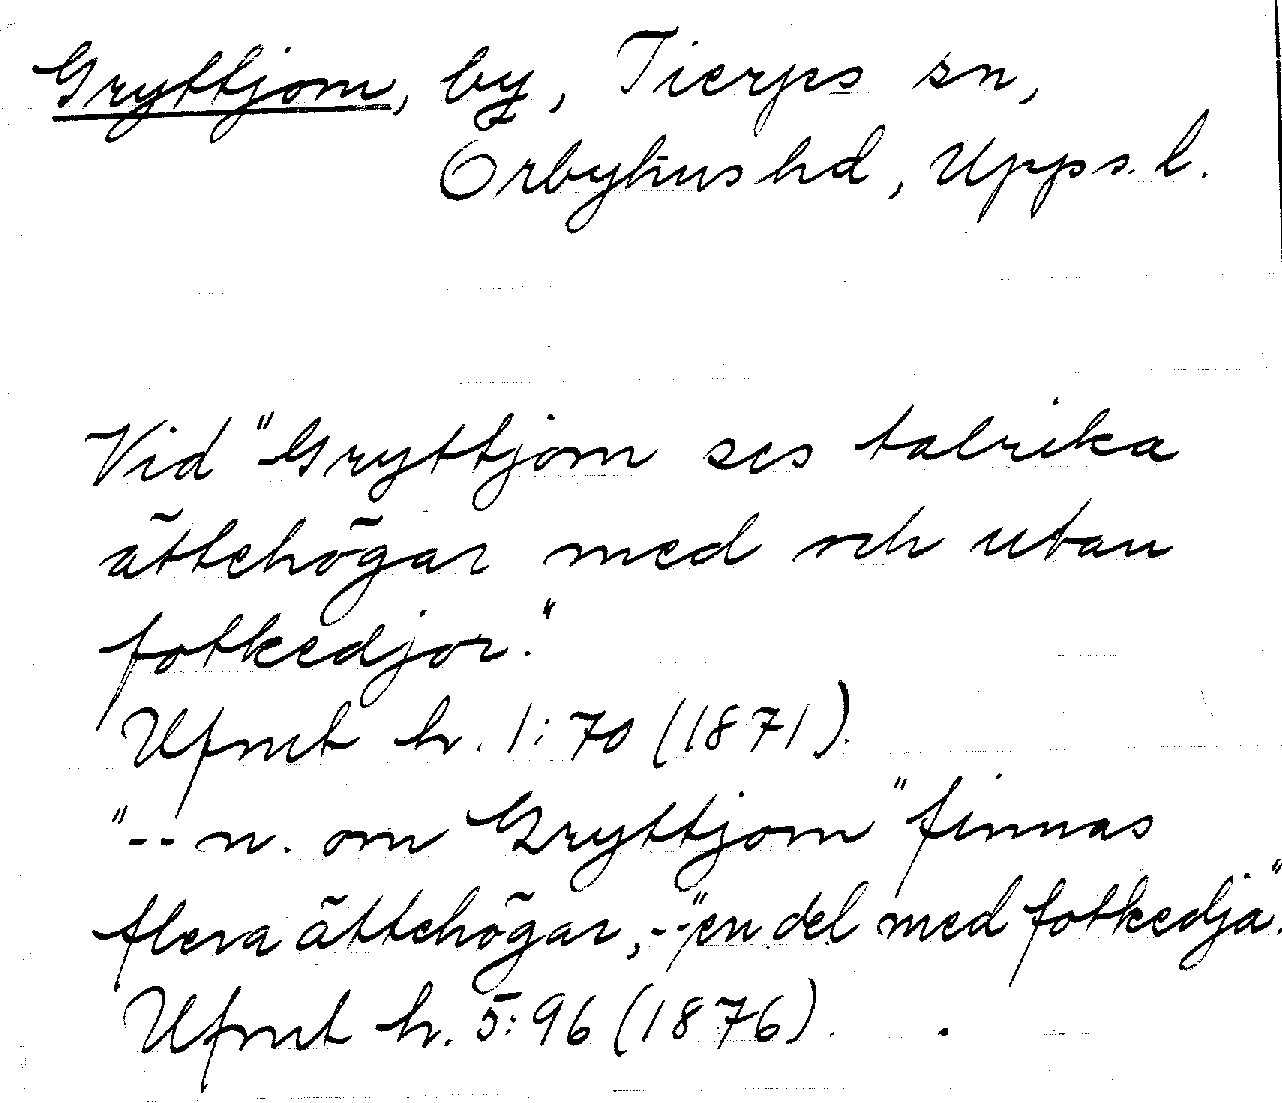 Gryttjom, by, Tierps sn,
Örbyhus hd, Upps. l.
Vid "Gryttjom ses talrika
ättehögar med och utan
fotkedjor."
Ufmt h. 1:70 (1871).
"-- n. om Gryttjom "finnas
flera ättehögar, --"en del med fotkedja".
Ufmt h. 5:96 (1876).